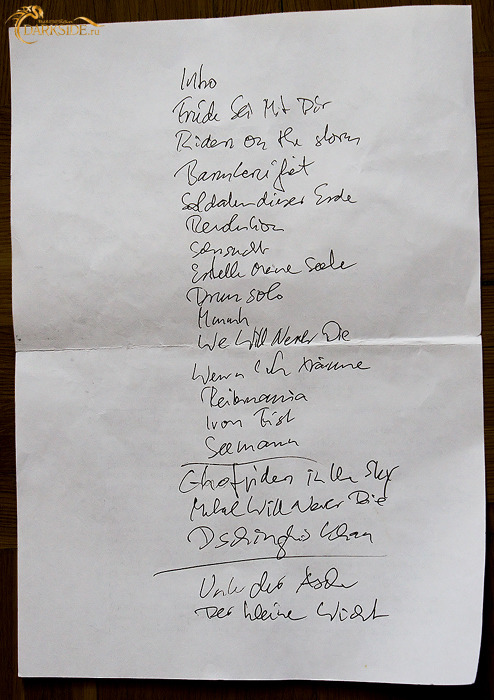 DARKSIDE.ru
Intro
Friede Sei Mit Dir
Riders on the storm
Barmherzigkeit
Soldaten dieser Erde
Revolution
Sehnsucht
Erhelle meine Seele
Drum solo
We Will Never Die
Wenn ich träume
Reitermania
Iron Fist
Seemann
Ghostriders in the Sky
Metal Will Never Die
Dschinghis Khan
Unter der Asche
Der kleine Wicht